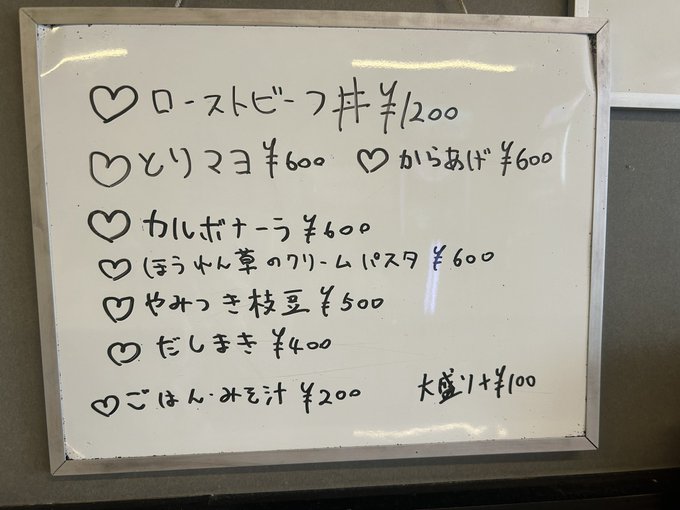 ♡ ローストビーフ丼 ¥1200
♡ とりマヨ ¥600 ♡ からあげ ¥600
♡ カルボナーラ ¥600
♡ ほうれん草のクリームパスタ ¥600
♡ やみつき枝豆 ¥500
♡ だしまき ¥400
♡ ごはん・みそ汁 ¥200 大盛り+¥100